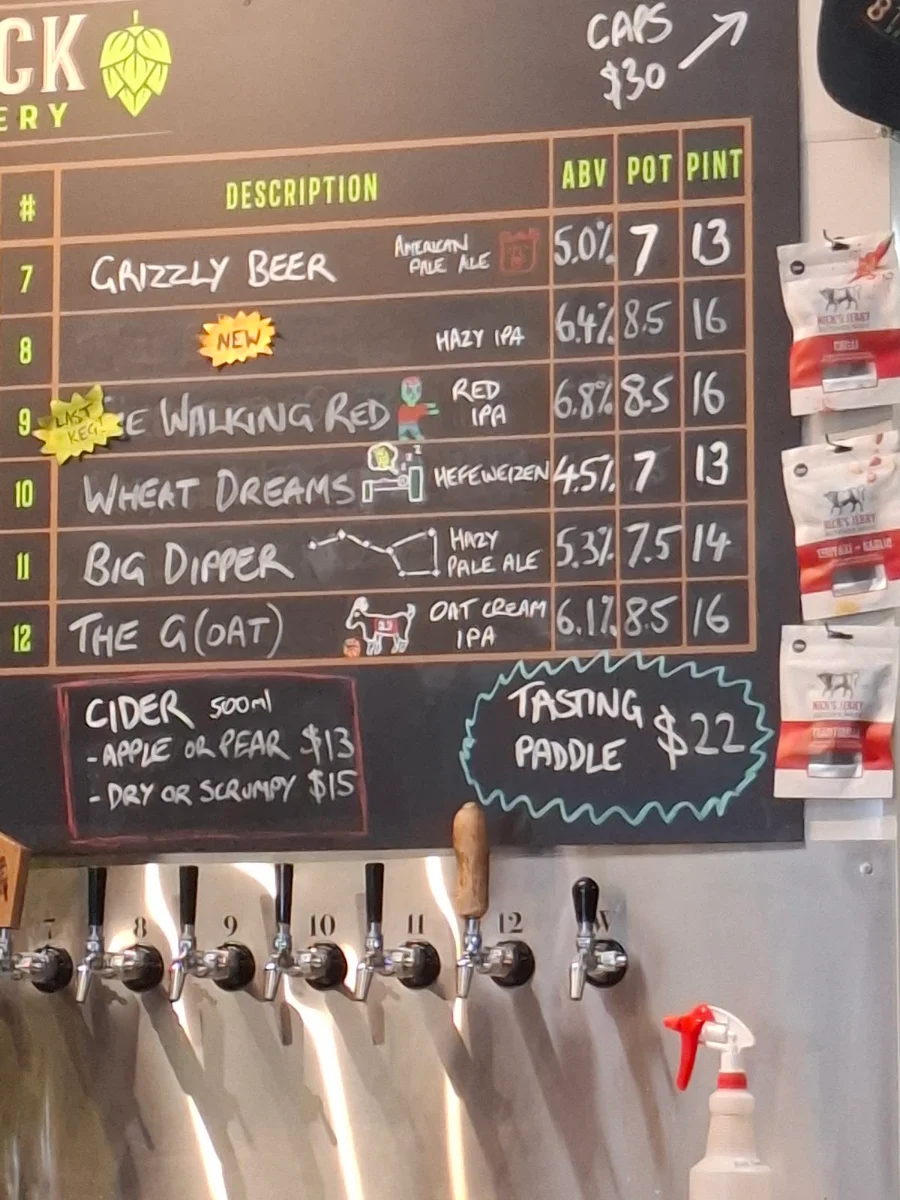 CK
ERY
CAPS
$30
# DESCRIPTION ABV POT PINT
7 GRIZZLY BEER AMERICAN PALE ALE 5.0% 7 13
8 NEW HAZY IPA 6.4% 8.5 16
9 LAST KEG! E WALKING RED RED IPA 6.8% 8.5 16
10 WHEAT DREAMS HEFEWEIZEN 4.5% 7 13
11 BIG DIPPER HAZY PALE ALE 5.3% 7.5 14
12 THE G(OAT) OAT CREAM IPA 6.1% 8.5 16
CIDER 500ml
- APPLE OR PEAR $13
- DRY OR SCRUMPY $15
TASTING
PADDLE $22
NICK'S JERKY
CHILLI
NICK'S JERKY
NICK'S JERKY
TRADITIONAL
7 8 9 10 11 12 W